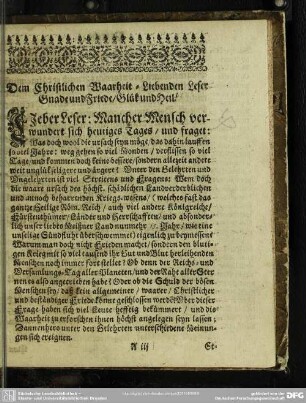 Dem Christlichen Waarheit - Liebenden Leser
Gnade und Friede/ Glük und Heil/
Lieber Leser: Mancher Mensch ver-
wundert sich heutiges Tages/ und fraget:
Was doch wool die ursach seyn möge/ das dahin lauffen
so viel Jahre: weg gehen so viel Monden/ verfliessen so viel
Tage/ und kommen doch keine bessere/ sondern allezeit andere
weit unglükseligere und ärgere? Unter den Gelehrten und
Ungelehrten ist viel Streitens und Fragens: Wem doch
die waare ursach des höchst-schädlichen Landverderblichen
und annoch beharrenden Kriegs-wesens/ (welches fast das
gantze Heilige Röm. Reich/ auch viel andere Königreiche/
Fürstenthümer/ Länder und Herrschafften/ und absonder-
lich unser liebes Meißner Land nunmehr Jahr/ wie eine
unselige Sündfluht überschwemmet) eigentlich zu
Warum man doch nicht Frieden machet/ sondern den bluti-
gen Krieg mit so viel tausend die Gut und Blut verliehrenden
Menschen noch immer fortstellet? Ob denn der Reichs- und
Versamlungs-Tag aller Planeten/ und der Raht aller Ster-
nen es also angetrieben habe? Oder ob die Schuld der bösen
Menschen sey/ daß kein allgemeiner/ waarer/ Christlicher
und beständiger Friede könne geschlossen werden? Über dieser
Frage haben sich viel Leute hefftig bekümmert/ und die
Waarheit zu erforschen ihnen höchst angelegen seyn lassen;
Dannenhero unter den Gelehrten unterschiedene Meinun-
gen sich ereignen.
A iij
Et-